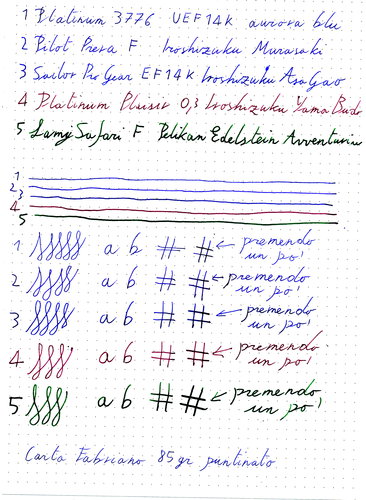 1 Platinum 3776 UEF 14K aurora blu
2 Pilot Prera F Iroshizuku Murasaki
3 Sailor Pro Gear EF 14K Iroshizuku AsaGao
4 Platinum Plaisir 0,3 Iroshizuku Yama Budo
5 Lamy Safari F Pelikan Edelstein Avventurine
1
2
3
4
5
1 a b # # ← premendo un po'
2 a b # # ← premendo un po'
3 a b # # ← premendo un po'
4 a b # # ← premendo un po'
5 a b # # ← premendo un po'
Carta Fabriano 85 gr puntinato